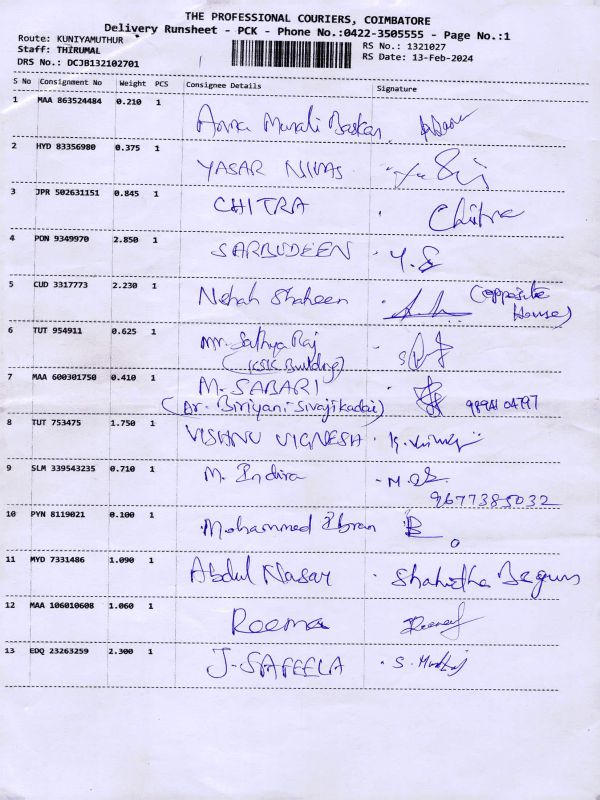 THE PROFESSIONAL COURIERS, COIMBATORE
Delivery Runsheet - PCK - Phone No.:0422-3505555 - Page No.:1
Route: KUNIYAMUTHUR RS No.: 1321027
Staff: THIRUMAL RS Date: 13-Feb-2024
DRS No.: DCJB132102701
S No Consignment No Weight PCS Consignee Details Signature
1 MAA 863524484 0.210 1 Anna Murali Baskar
2 HYD 83356980 0.375 1 YASAR
3 JPR 502631151 0.845 1 CHITRA Chitra
4 PON 9349970 2.850 1 SARBUDEEN Y.S
5 CUD 3317773 2.230 1 Nehah Shaheen (opposite
House)
6 TUT 954911 0.625 1 Mr. Sathya Raj
(KSK Building)
7 MAA 600301750 0.410 1 M. SABARI
(Ar. Biriyani-Sivajikadai) 98941 04797
8 TUT 753475 1.750 1 VISHNU VIGNESH
9 SLM 339543235 0.710 1 M. Indira
9677385032
10 PYN 8119021 0.100 1 Mohammed Ibran
11 MYD 7331486 1.090 1 Abdul Nasar Shahitha Begum
12 MAA 106010608 1.060 1 Reema
13 EDQ 23263259 2.300 1 J-SAFEELA S.